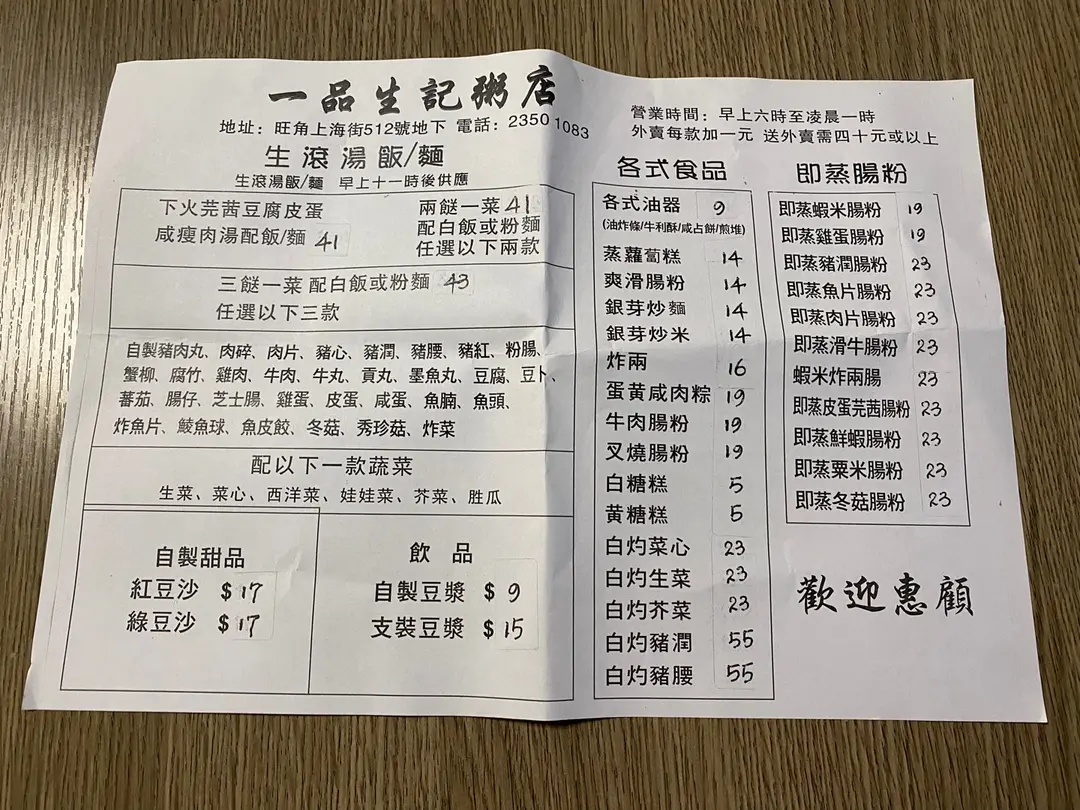 一品生記粥店
地址：旺角上海街512號地下 電話：2350 1083
營業時間：早上六時至凌晨一時
外賣每款加一元 送外賣需四十元或以上
生滾湯飯/麵
生滾湯飯/麵 早上十一時後供應
下火芫茜豆腐皮蛋
咸瘦肉湯配飯/麵 41
兩餸一菜 41
配白飯或粉麵
任選以下兩款
三餸一菜 配白飯或粉麵 43
任選以下三款
自製豬肉丸、肉碎、肉片、豬心、豬潤、豬腰、豬紅、粉腸、
蟹柳、腐竹、雞肉、牛肉、牛丸、貢丸、墨魚丸、豆腐、豆卜、
蕃茄、腸仔、芝士腸、雞蛋、皮蛋、咸蛋、魚腩、魚頭、
炸魚片、鯪魚球、魚皮餃、冬菇、秀珍菇、炸菜
配以下一款蔬菜
生菜、菜心、西洋菜、娃娃菜、芥菜、胜瓜
自製甜品
紅豆沙 $17
綠豆沙 $17
飲 品
自製豆漿 $9
支裝豆漿 $15
各式食品
各式油器 9
(油炸條/牛利酥/咸占餅/煎堆)
蒸蘿蔔糕 14
爽滑腸粉 14
銀芽炒麵 14
銀芽炒米 14
炸兩 16
蛋黃咸肉粽 19
牛肉腸粉 19
叉燒腸粉 19
白糖糕 5
黃糖糕 5
白灼菜心 23
白灼生菜 23
白灼芥菜 23
白灼豬潤 55
白灼豬腰 55
即蒸腸粉
即蒸蝦米腸粉 19
即蒸雞蛋腸粉 19
即蒸豬潤腸粉 23
即蒸魚片腸粉 23
即蒸肉片腸粉 23
即蒸滑牛腸粉 23
蝦米炸兩腸 23
即蒸皮蛋芫茜腸粉 23
即蒸鮮蝦腸粉 23
即蒸粟米腸粉 23
即蒸冬菇腸粉 23
歡迎惠顧